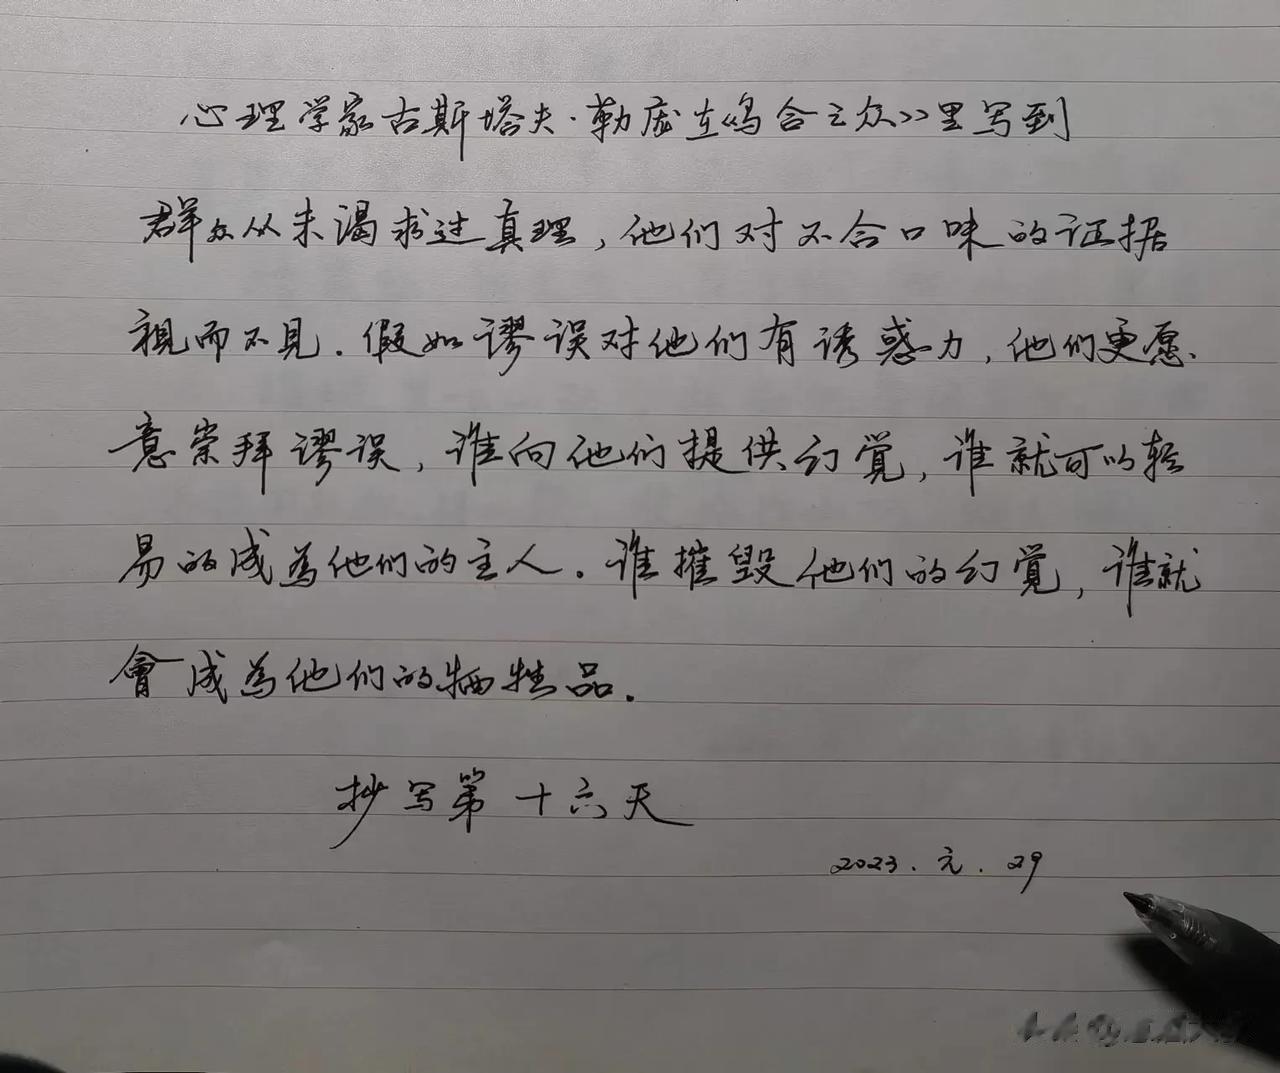 心理学家古斯塔夫·勒庞在《乌合之众》里写到
群众从未渴求过真理，他们对不合口味的证据
视而不见.假如谬误对他们有诱惑力,他们更愿
意崇拜谬误,谁向他们提供幻觉,谁就可以轻
易的成為他们的主人.谁摧毁他们的幻觉,谁就
會成為他们的牺牲品.
抄写第十六天
2023.元.29